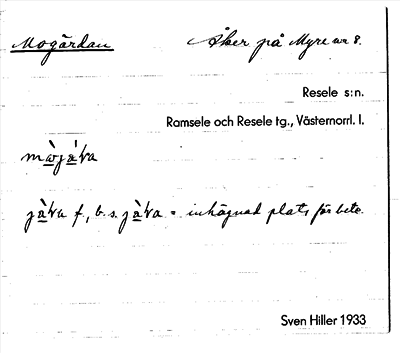 Mogärdan Åker på Myre nr 8.
Resele s:n.
Ramsele och Resele tg., Västernorrl. l.
jà̱ḷ̱va f, b. s. jà̱ḷ̱va = inhägnad plats för bete.
Sven Hiller 1933